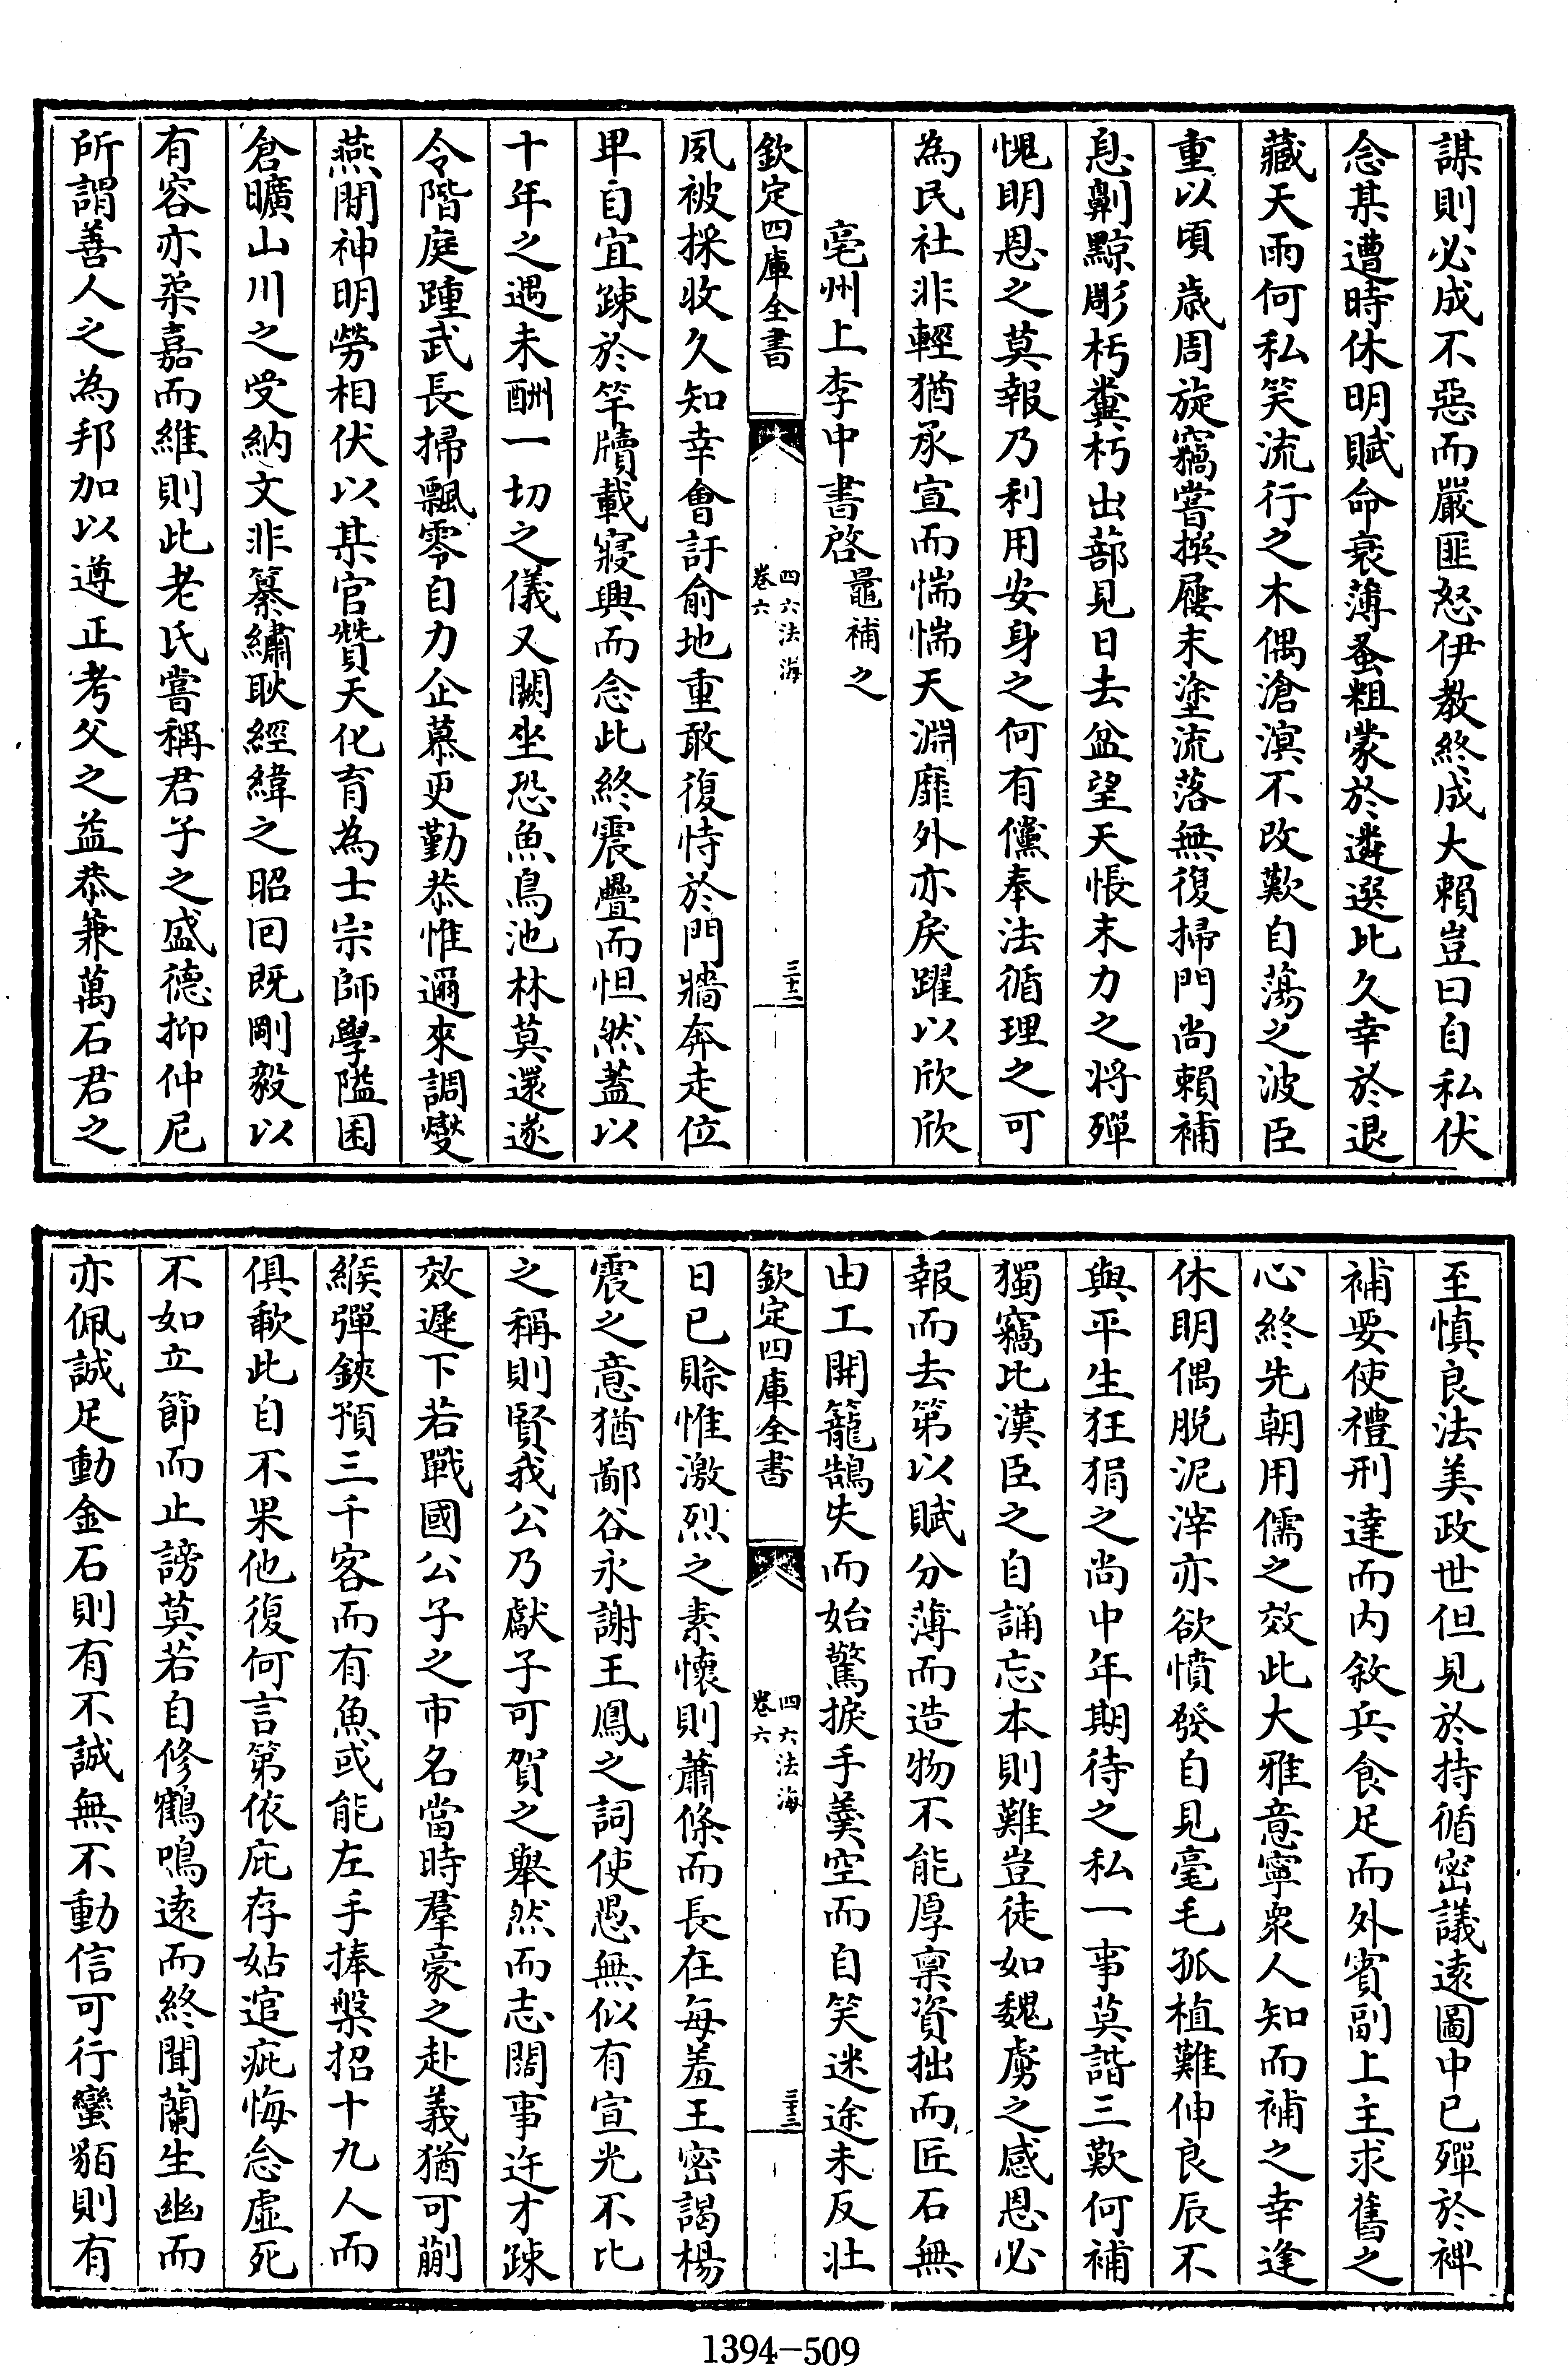 謀則必成不惡而嚴匪怒伊教終成大賴豈曰自私伏
念某遭時休明賦命衰薄蚤粗蒙於遴選比久幸於退
藏天雨何私笑流行之木偶滄溟不改歎自蕩之波臣
重以頃歲周旋竊嘗撰屨末塗流落無復掃門尚賴補
息劓黥彫朽糞朽出蔀見日去盆望天悵末力之將殫
愧明恩之莫報乃利用安身之何有儻奉法循理之可
為民社非輕猶承宣而惴惴天淵靡外亦戾躍以欣欣
亳州上李中書啓 鼂補之
欽定四庫全書 四六法海 卷六 三十二
夙被採收久知幸會訏俞地重敢復恃於門牆奔走位
卑自宜踈於竿牘載寢興而念此終震疊而怛然蓋以
十年之遇未酬一切之儀又闕坐恐魚鳥池林莫還遂
令階庭踵武長掃飄零自力企慕更勤恭惟邇來調燮
燕閒神明勞相伏以某官贊天化育為士宗師學隘囷
倉曠山川之受納文非纂繡耿經緯之昭回既剛毅以
有容亦柔嘉而維則此老氏嘗稱君子之盛德抑仲尼
所謂善人之為邦加以遵正考父之益恭兼萬石君之
至慎良法美政世但見於持循密議遠圖中已殫於裨
補要使禮刑達而內敘兵食足而外賓副上主求舊之
心終先朝用儒之效此大雅意寧衆人知而補之幸逢
休明偶脫泥滓亦欲憤發自見毫毛孤植難伸良辰不
與平生狂狷之尚中年期待之私一事莫諧三歎何補
獨竊比漢臣之自誦忘本則難豈徒如魏虜之感恩必
報而去第以賦分薄而造物不能厚稟資拙而匠石無
由工開籠鵠失而始驚捩手羹空而自笑迷途未反壯
欽定四庫全書 四六法海 卷六 三十三
日已賒惟激烈之素懷則蕭條而長在每羞王密謁楊
震之意猶鄙谷永謝王鳳之詞使愚無似有宣光不比
之稱則賢我公乃獻子可賀之舉然而志闊事迂才踈
效遲下若戰國公子之市名當時羣豪之赴義猶可蒯
緱彈鋏預三千客而有魚或能左手捧槃招十九人而
俱歃此自不果他復何言第依庇存姑逭疵悔念虛死
不如立節而止謗莫若自修鶴鳴遠而終聞蘭生幽而
亦佩誠足動金石則有不誠無不動信可行蠻貊則有
1394-509